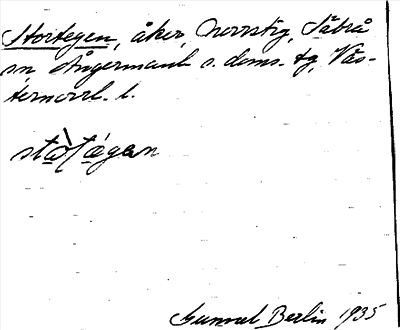 Stortegen, åker, Norrstig, Säbrå
sn, Ångermanl. s. doms. tg, Väs-
ternorrl. l.
Gunvel Berlin 1935